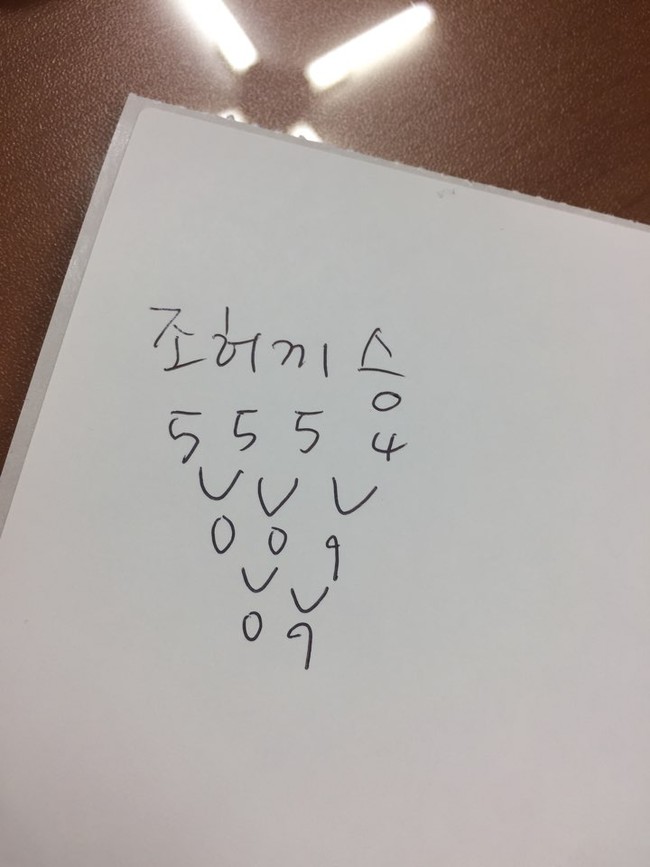 조허끼승
5 5 5 4
0 0 9
0 9